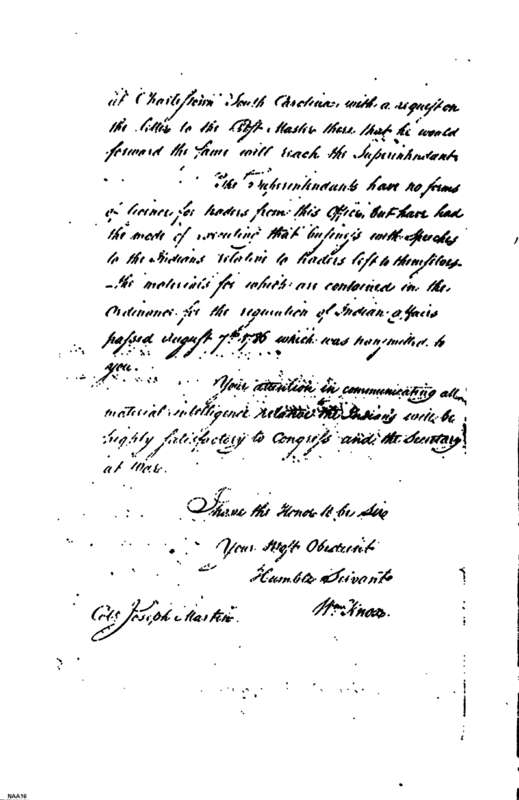 at Charlestown South Carolina, with a request on
the letter to the Post Master there that he would
forward the same will reach the Superintendant
The Superintendants have no forms
of licence for traders from this Office, but have had
the mode of executing that business with Speeches
to the Indians relative to traders left to themselves
the materials for which are contained in the
Ordinance for the regulation of Indian affairs
passed August 7th 1786 which was transmitted to
you.
Your attention in communicating all
material intelligence relative to the Indians will be
highly satisfactory to Congress and the Secretary
at War.
I have the Honor to be Sir
Your Most Obedient
Humble Servant
Wm Knox.
Colo. Joseph Martin.
NAA16